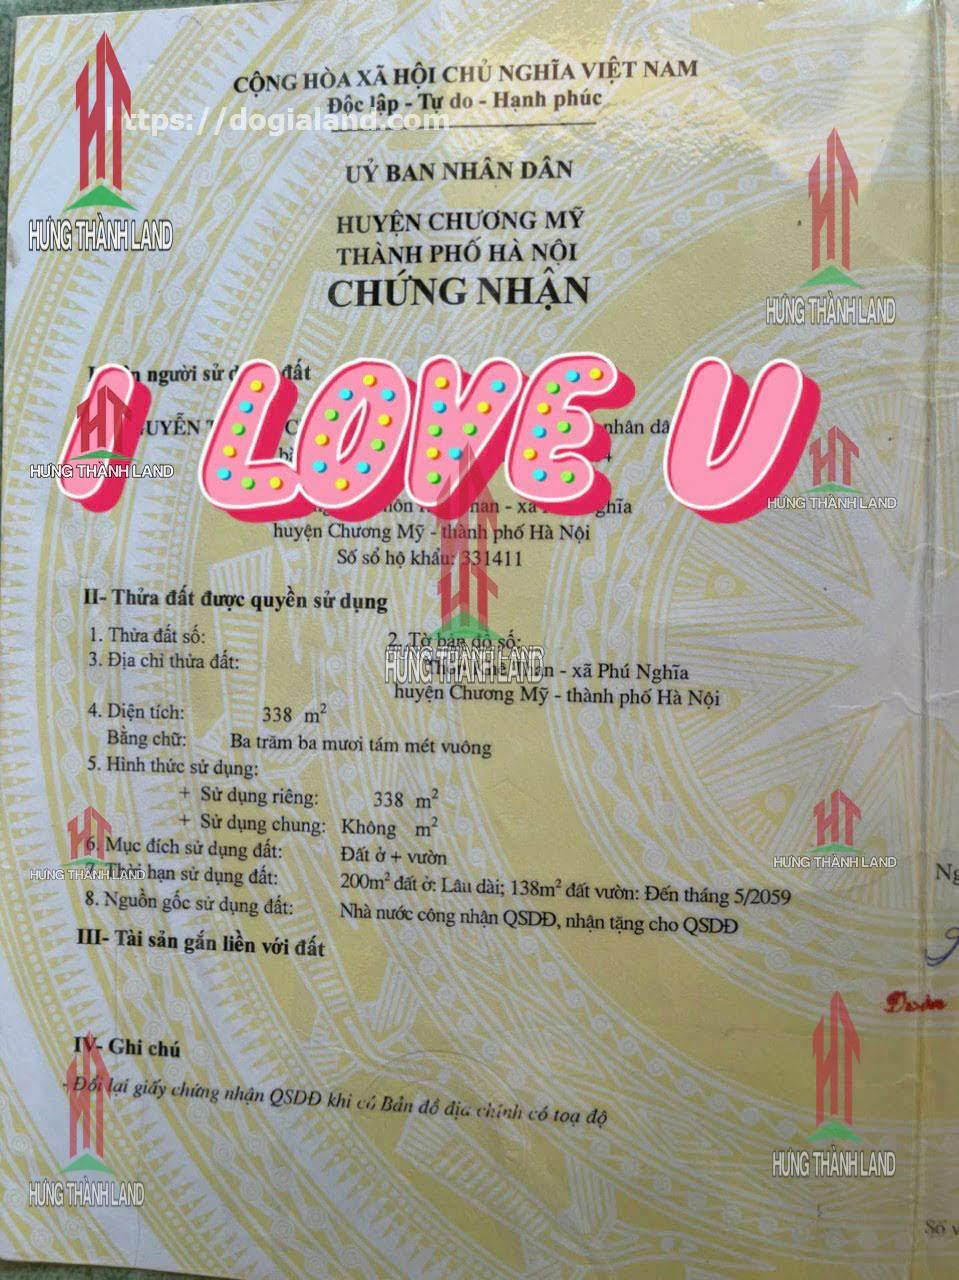 CỘNG HÒA XÃ HỘI CHỦ NGHĨA VIỆT NAM
Độc lập - Tự do - Hạnh phúc
https://dogialand.com
UỶ BAN NHÂN DÂN
HUYỆN CHƯƠNG MỸ
THÀNH PHỐ HÀ NỘI
CHỨNG NHẬN
HƯNG THÀNH LAND
HƯNG THÀNH LAND
người sử đất
I LOVE U
nhân
HƯNG THÀNH LAND
HƯNG THÀNH LAND
huyện Chương Mỹ - thành phố Hà Nội
Số sổ hộ khẩu: 331411
II- Thửa đất được quyền sử dụng
1. Thửa đất số: 2. Tờ bản đồ số:
3. Địa chỉ thửa đất: - xã Phú Nghĩa
HƯNG THÀNH LAND
huyện Chương Mỹ - thành phố Hà Nội
4. Diện tích: 338 m²
Bằng chữ: Ba trăm ba mươi tám mét vuông
5. Hình thức sử dụng:
+ Sử dụng riêng: 338 m²
+ Sử dụng chung: Không m²
6. Mục đích sử dụng đất: Đất ở + vườn
HƯNG THÀNH LAND
HƯNG THÀNH LAND
7. Thời hạn sử dụng đất: 200m² đất ở: Lâu dài; 138m² đất vườn: Đến tháng 5/2059
8. Nguồn gốc sử dụng đất: Nhà nước công nhận QSDĐ, nhận tặng cho QSDĐ
III- Tài sản gắn liền với đất
Đoàn
IV- Ghi chú
- Đổi lại giấy chứng nhận QSDĐ khi có Bản đồ địa chính có toạ độ
HƯNG THÀNH LAND
HƯNG THÀNH LAND
Số